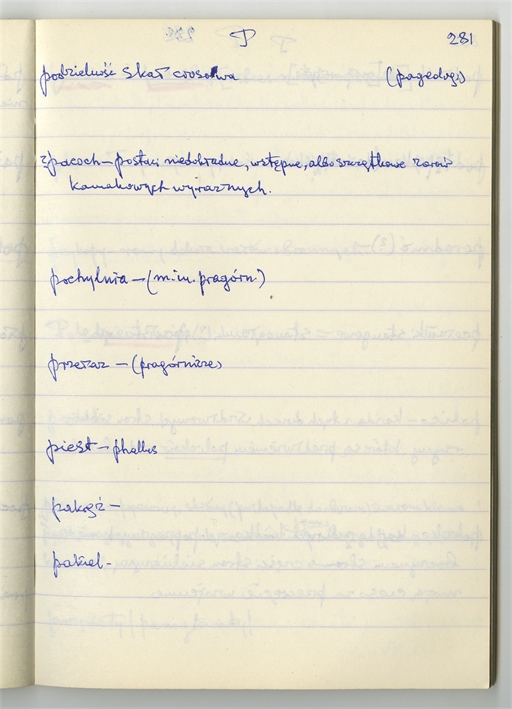 P 281
podzielność skał czasowa (pagedog.)
pacoch – postaci niedokładne, wstępne, albo szczątkowe
kamakowych wyraznych.
pochylnia – (min. pragórn.)
przeraz – (pragórnicze)
piest – phallus
pakość –
pakiel -